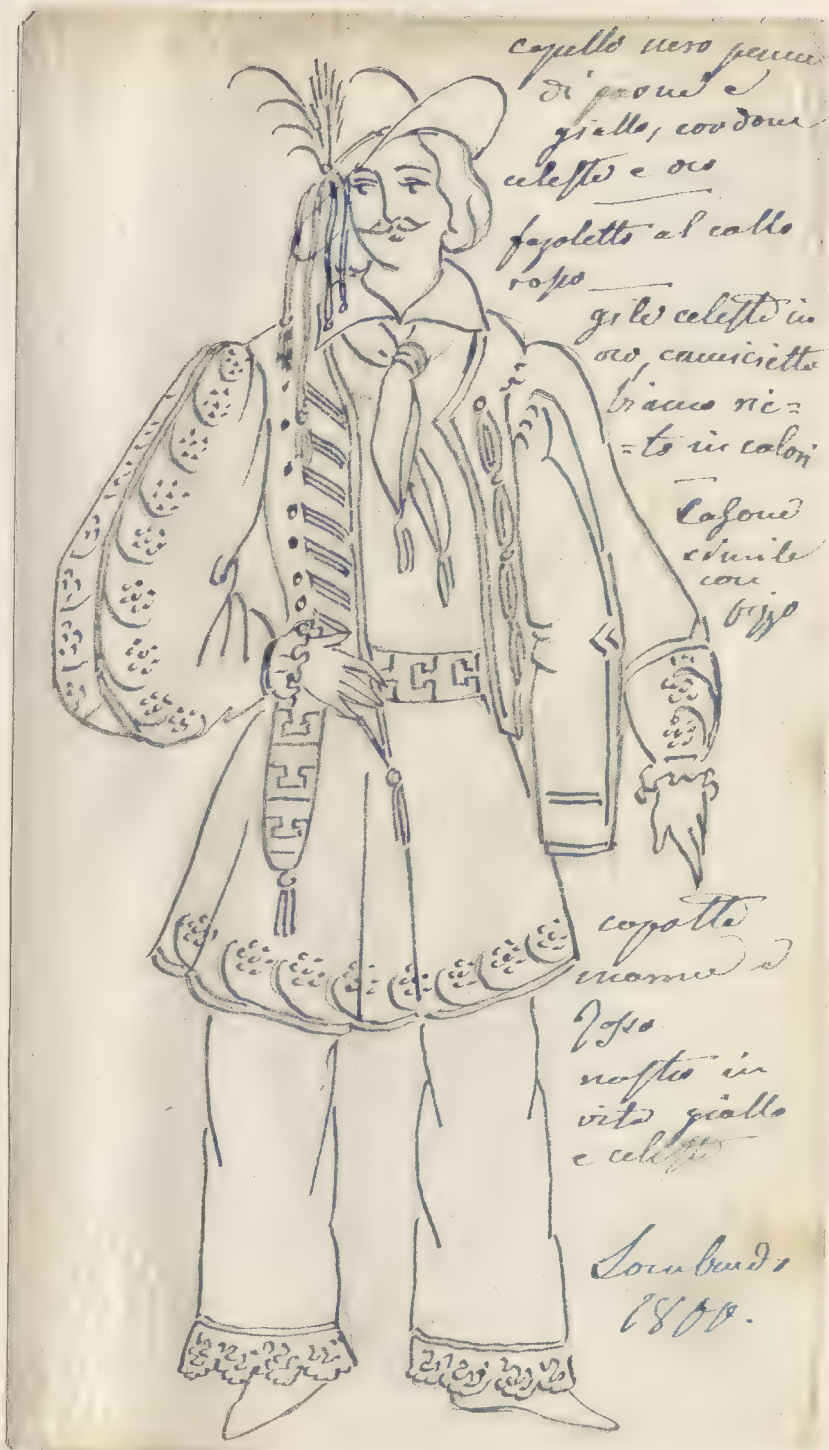 capello nero penne
di pavone e
giallo, cordone
celeste e oro
fazoletto al collo
roso
gile celeste in
oro, camicietta
bianca ric=
=to in colori
Calzone
simile
con
pizzo
capotto
marone e
rosso
nastro in
vita giallo
e celeste
Lombardo
1800.